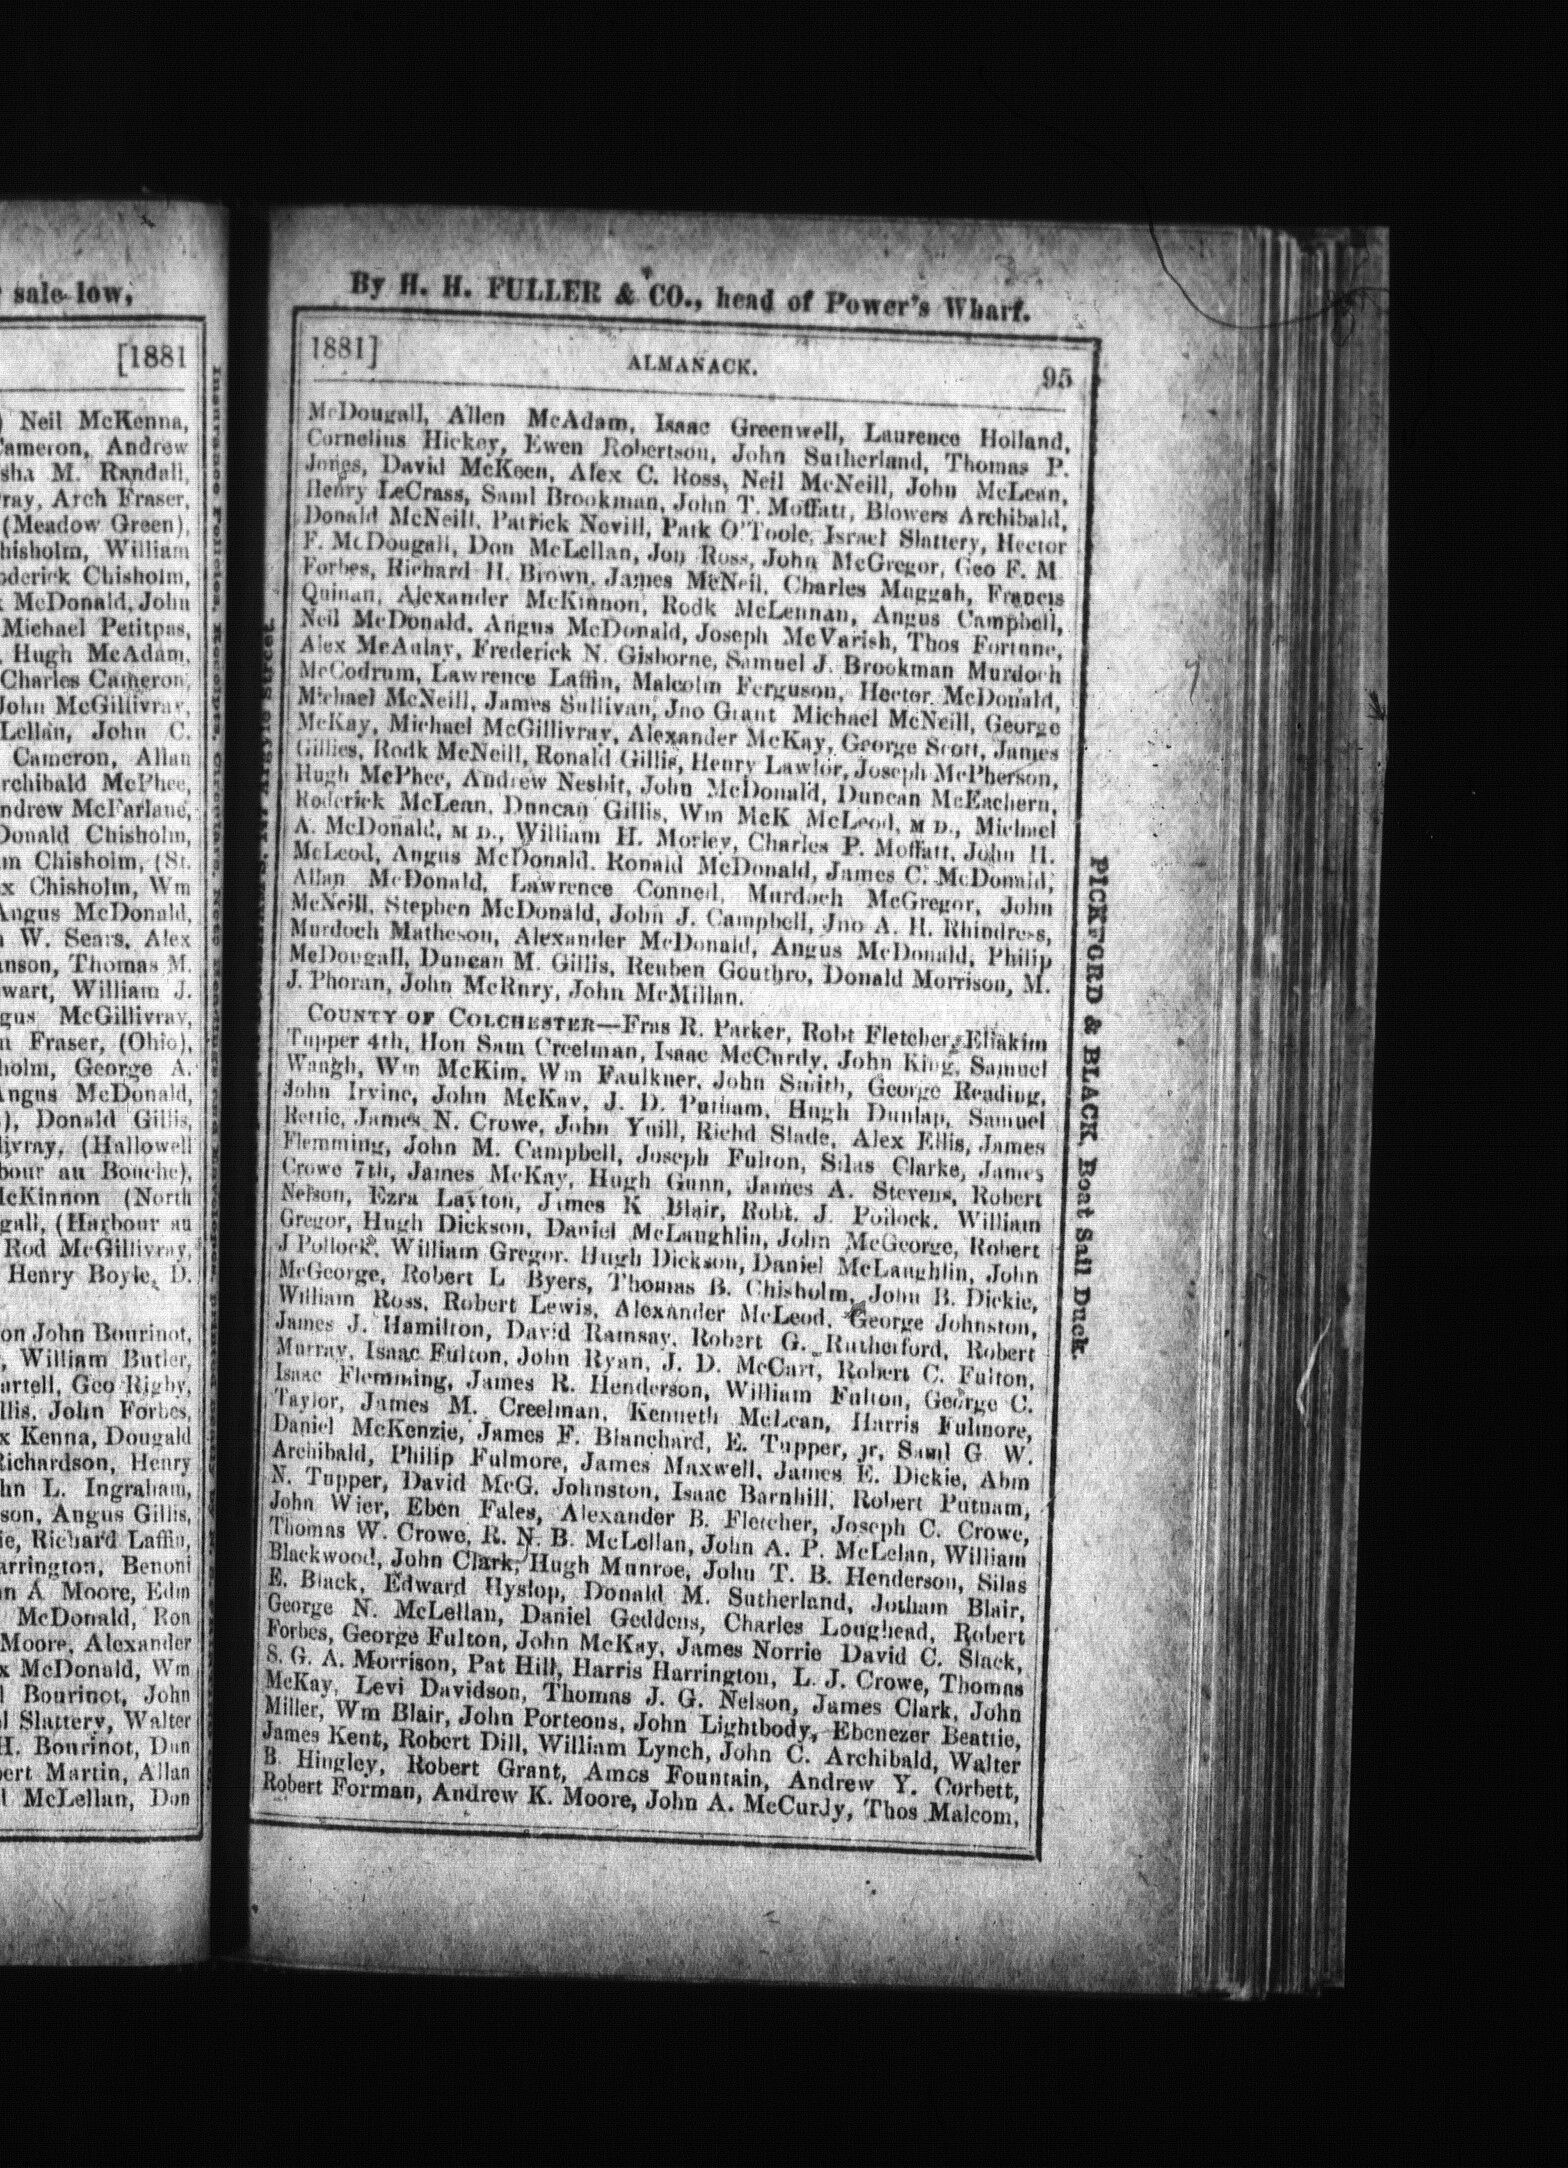 sale low,
[1881
Neil McKenna,
Cameron, Andrew
sha M. Randall,
ray, Arch Fraser,
(Meadow Green),
hisholm, William
oderick Chisholm,
McDonald, John
Michael Petitpas,
Hugh McAdam,
Charles Cameron,
John McGillivray,
Lellan, John C.
Cameron, Allan
rchibald McPhee,
ndrew McFarlane,
Donald Chisholm,
m Chisholm, (St.
x Chisholm, Wm
Angus McDonald,
W. Sears, Alex
anson, Thomas M.
wart, William J.
gus McGillivray,
n Fraser, (Ohio),
holm, George A.
Angus McDonald,
), Donald Gillis,
livray, (Hallowell
bour au Bouche),
McKinnon (North
gall, (Harbour au
Rod McGillivray,
Henry Boyle, D.
on John Bourinot,
, William Butler,
artell, Geo Rigby,
llis, John Forbes,
x Kenna, Dougald
Richardson, Henry
hn L. Ingraham,
son, Angus Gillis,
ie, Richard Laffin,
arrington, Benoni
n A Moore, Edm
McDonald, Ron
Moore, Alexander
x McDonald, Wm
l Bourinot, John
l Slattery, Walter
H. Bourinot, Dun
bert Martin, Allan
l McLellan, Don
By H. H. FULLER & CO., head of Power's Wharf.
1881] ALMANACK. 95
McDougall, Allen McAdam, Isaac Greenwell, Laurence Holland,
Cornelius Hickey, Ewen Robertson, John Sutherland, Thomas P.
Jones, David McKeen, Alex C. Ross, Neil McNeill, John McLean,
Henry LeCrass, Saml Brookman, John T. Moffatt, Blowers Archibald,
Donald McNeill, Patrick Nevill, Patk O'Toole, Israel Slattery, Hector
F. McDougall, Don McLellan, Jon Ross, John McGregor, Geo F. M
Forbes, Richard H. Brown, James McNeil, Charles Muggah, Francis
Quinan, Alexander McKinnon, Rodk McLennan, Angus Campbell,
Neil McDonald, Angus McDonald, Joseph McVarish, Thos Fortune,
Alex McAulay, Frederick N. Gisborne, Samuel J. Brookman Murdoch
McCodrum, Lawrence Laffin, Malcolm Ferguson, Hector McDonald,
Michael McNeill, James Sullivan, Jno Grant Michael McNeill, George
McKay, Michael McGillivray, Alexander McKay, George Scott, James
Gillies, Rodk McNeill, Ronald Gillis, Henry Lawlor, Joseph McPherson,
Hugh McPhee, Andrew Nesbit, John McDonald, Duncan McEachern,
Roderick McLean, Duncan Gillis, Wm McK McLeod, M D., Michael
A. McDonald, M D., William H. Morley, Charles P. Moffatt, John H.
McLeod, Angus McDonald. Ronald McDonald, James C. McDonald,
Allan McDonald, Lawrence Conned, Murdoch McGregor, John
McNeill, Stephen McDonald, John J. Campbell, Jno A. H. Rhindress,
Murdoch Matheson, Alexander McDonald, Angus McDonald, Philip
McDougall, Duncan M. Gillis, Reuben Gouthro, Donald Morrison, M.
J. Phoran, John McRury, John McMillan.
COUNTY OF COLCHESTER—Fras R. Parker, Robt Fletcher, Eliakim
Tupper 4th, Hon Sam Creelman, Isaac McCurdy, John King, Samuel
Waugh, Wm McKim, Wm Faulkner, John Smith, George Reading,
John Irvine, John McKay, J. D. Putnam, Hugh Dunlap, Samuel
Rettie, James N. Crowe, John Yuill, Richd Slade, Alex Ellis, James
Flemming, John M. Campbell, Joseph Fulton, Silas Clarke, James
Crowe 7th, James McKay, Hugh Gunn, James A. Stevens, Robert
Nelson, Ezra Layton, James K Blair, Robt. J. Pollock, William
Gregor, Hugh Dickson, Daniel McLaughlin, John McGeorge, Robert
J Pollock, William Gregor. Hugh Dickson, Daniel McLaughlin, John
McGeorge, Robert L Byers, Thomas B. Chisholm, John B. Dickie,
William Ross, Robert Lewis, Alexander McLeod, George Johnston,
James J. Hamilton, David Ramsay, Robert G. Rutherford, Robert
Murray, Isaac Fulton, John Ryan, J. D. McCart, Robert C. Fulton,
Isaac Flemming, James R. Henderson, William Fulton, George C.
Taylor, James M. Creelman, Kenneth McLean, Harris Fulmore,
Daniel McKenzie, James F. Blanchard, E. Tupper, jr, Saml G W.
Archibald, Philip Fulmore, James Maxwell, James E. Dickie, Abm
N. Tupper, David McG. Johnston, Isaac Barnhill, Robert Putnam,
John Wier, Eben Fales, Alexander B. Fletcher, Joseph C. Crowe,
Thomas W. Crowe, R. N. B. McLellan, John A. P. McLelan, William
Blackwood, John Clark, Hugh Munroe, John T. B. Henderson, Silas
E. Black, Edward Hyslop, Donald M. Sutherland, Jotham Blair,
George N. McLellan, Daniel Geddens, Charles Loughead, Robert
Forbes, George Fulton, John McKay, James Norrie David C. Slack,
S. G. A. Morrison, Pat Hill, Harris Harrington, L. J. Crowe, Thomas
McKay, Levi Davidson, Thomas J. G. Nelson, James Clark, John
Miller, Wm Blair, John Porteous, John Lightbody, Ebenezer Beattie,
James Kent, Robert Dill, William Lynch, John C. Archibald, Walter
B. Hingley, Robert Grant, Amos Fountain, Andrew Y. Corbett,
Robert Forman, Andrew K. Moore, John A. McCurdy, Thos Malcom,
PICKFORD & BLACK, Boat Sail Duck.